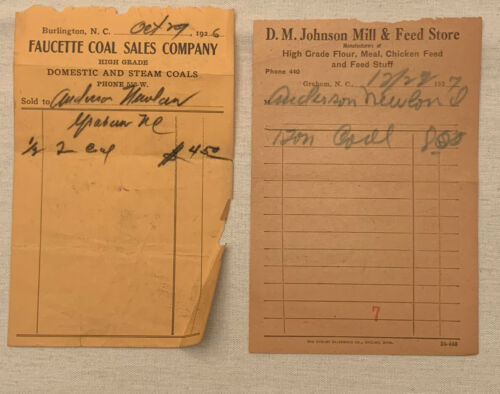 Burlington, N. C. Oct 29, 1926
FAUCETTE COAL SALES COMPANY
HIGH GRADE
DOMESTIC AND STEAM COALS
PHONE
Sold to Anderson Newlin
Graham NC
1/2 T Coal $4.50
D. M. Johnson Mill & Feed Store
Manufacturers of
High Grade Flour, Meal, Chicken Feed
and Feed Stuff
Phone 440
Graham, N. C., 12/28 1927
M Anderson Newlon
Ton Coal 8.00
7